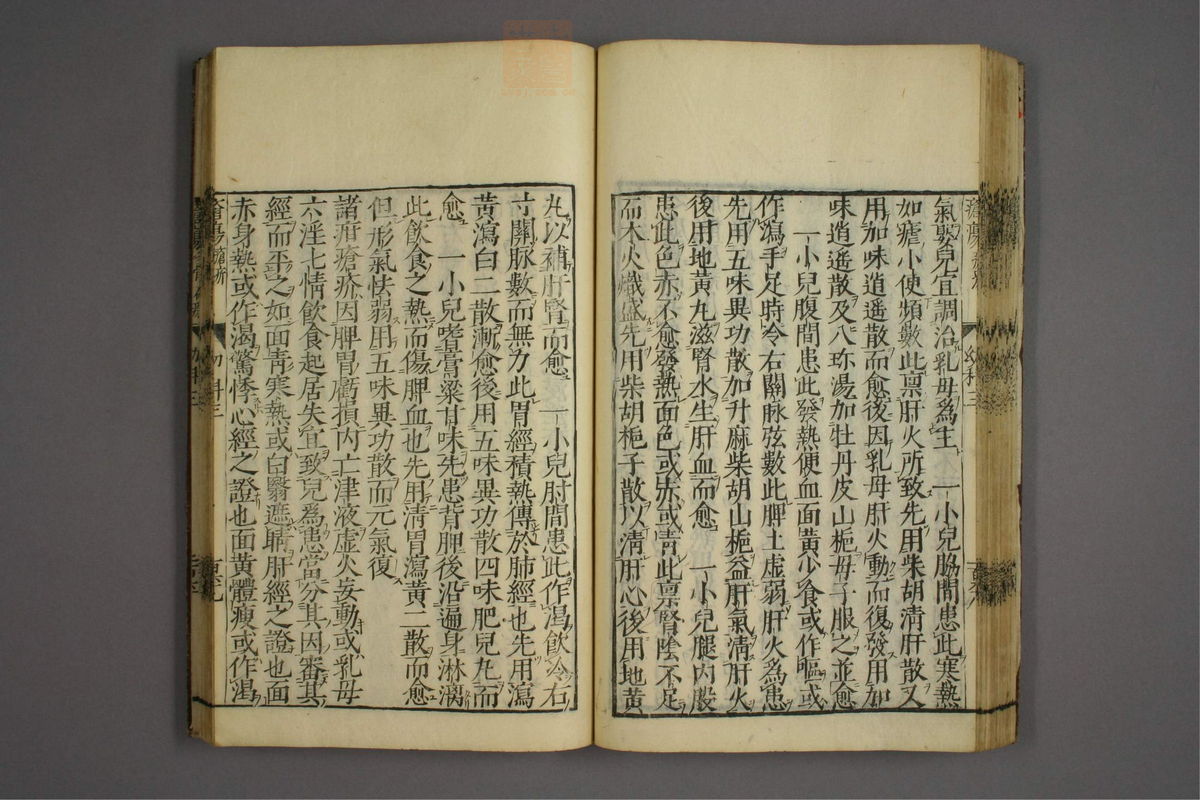 氣嬰兒宜調治乳母爲主　一小兒脇間患此寒熱
如瘧小便頻數此禀肝火所致先用柴胡清肝散又
用加味逍遥散而愈後因乳母肝火動而復發用加
味逍遥散及八珎湯加牡丹皮山梔母子服之並愈
一小兒腹間患此發熱便血面黄少食或作嘔或
作瀉手足時冷右關脉弦數此脾土虚弱肝火爲患
先用五味異功散加升麻柴胡山梔益肝氣清肝火
後用地黄丸滋腎水生肝血而愈　一小兒腿内股
患此色赤不愈發熱面色或赤或青此禀腎陰不足
而木火熾盛先用柴胡梔子散以清肝心後用地黄
丸以補肝腎而愈　一小兒肘間患此作渴飲冷右
寸關脉數而無力此胃經積熱傳於肺經也先用瀉
黄瀉白二散漸愈後用五味異功散四味肥兒丸而
愈　一小兒嗜膏粱甘味先患背胛後沿遍身淋漓
此飲食之熱而傷脾血也先用清胃瀉黄二散而愈
但形氣怯弱用五味異功散而元氣復
諸疳瘡疥因脾胃虧損内亡津液虚火妄動或乳母
六淫七情飲食起居失宜致兒爲患當分其因審其
經而平之如面青寒熱或白翳遮睛肝經之證也面
赤身熱或作渴驚悸心經之證也面黄體瘦或作渴
幼科三
幼科三